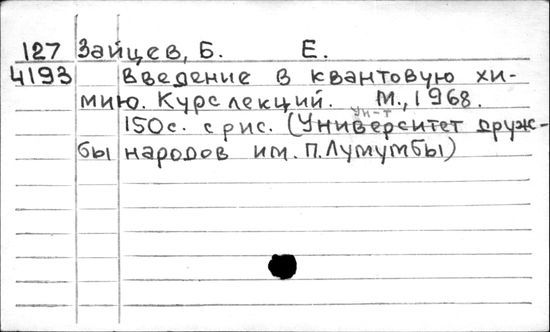 127 Зайцев, Б. Е.
4193 Введение в квантовую хи-
мию. Курс лекций. М., 1968.
ун-т
150с. с рис. (Университет друж-
бы народов им. П. Лумумбы)